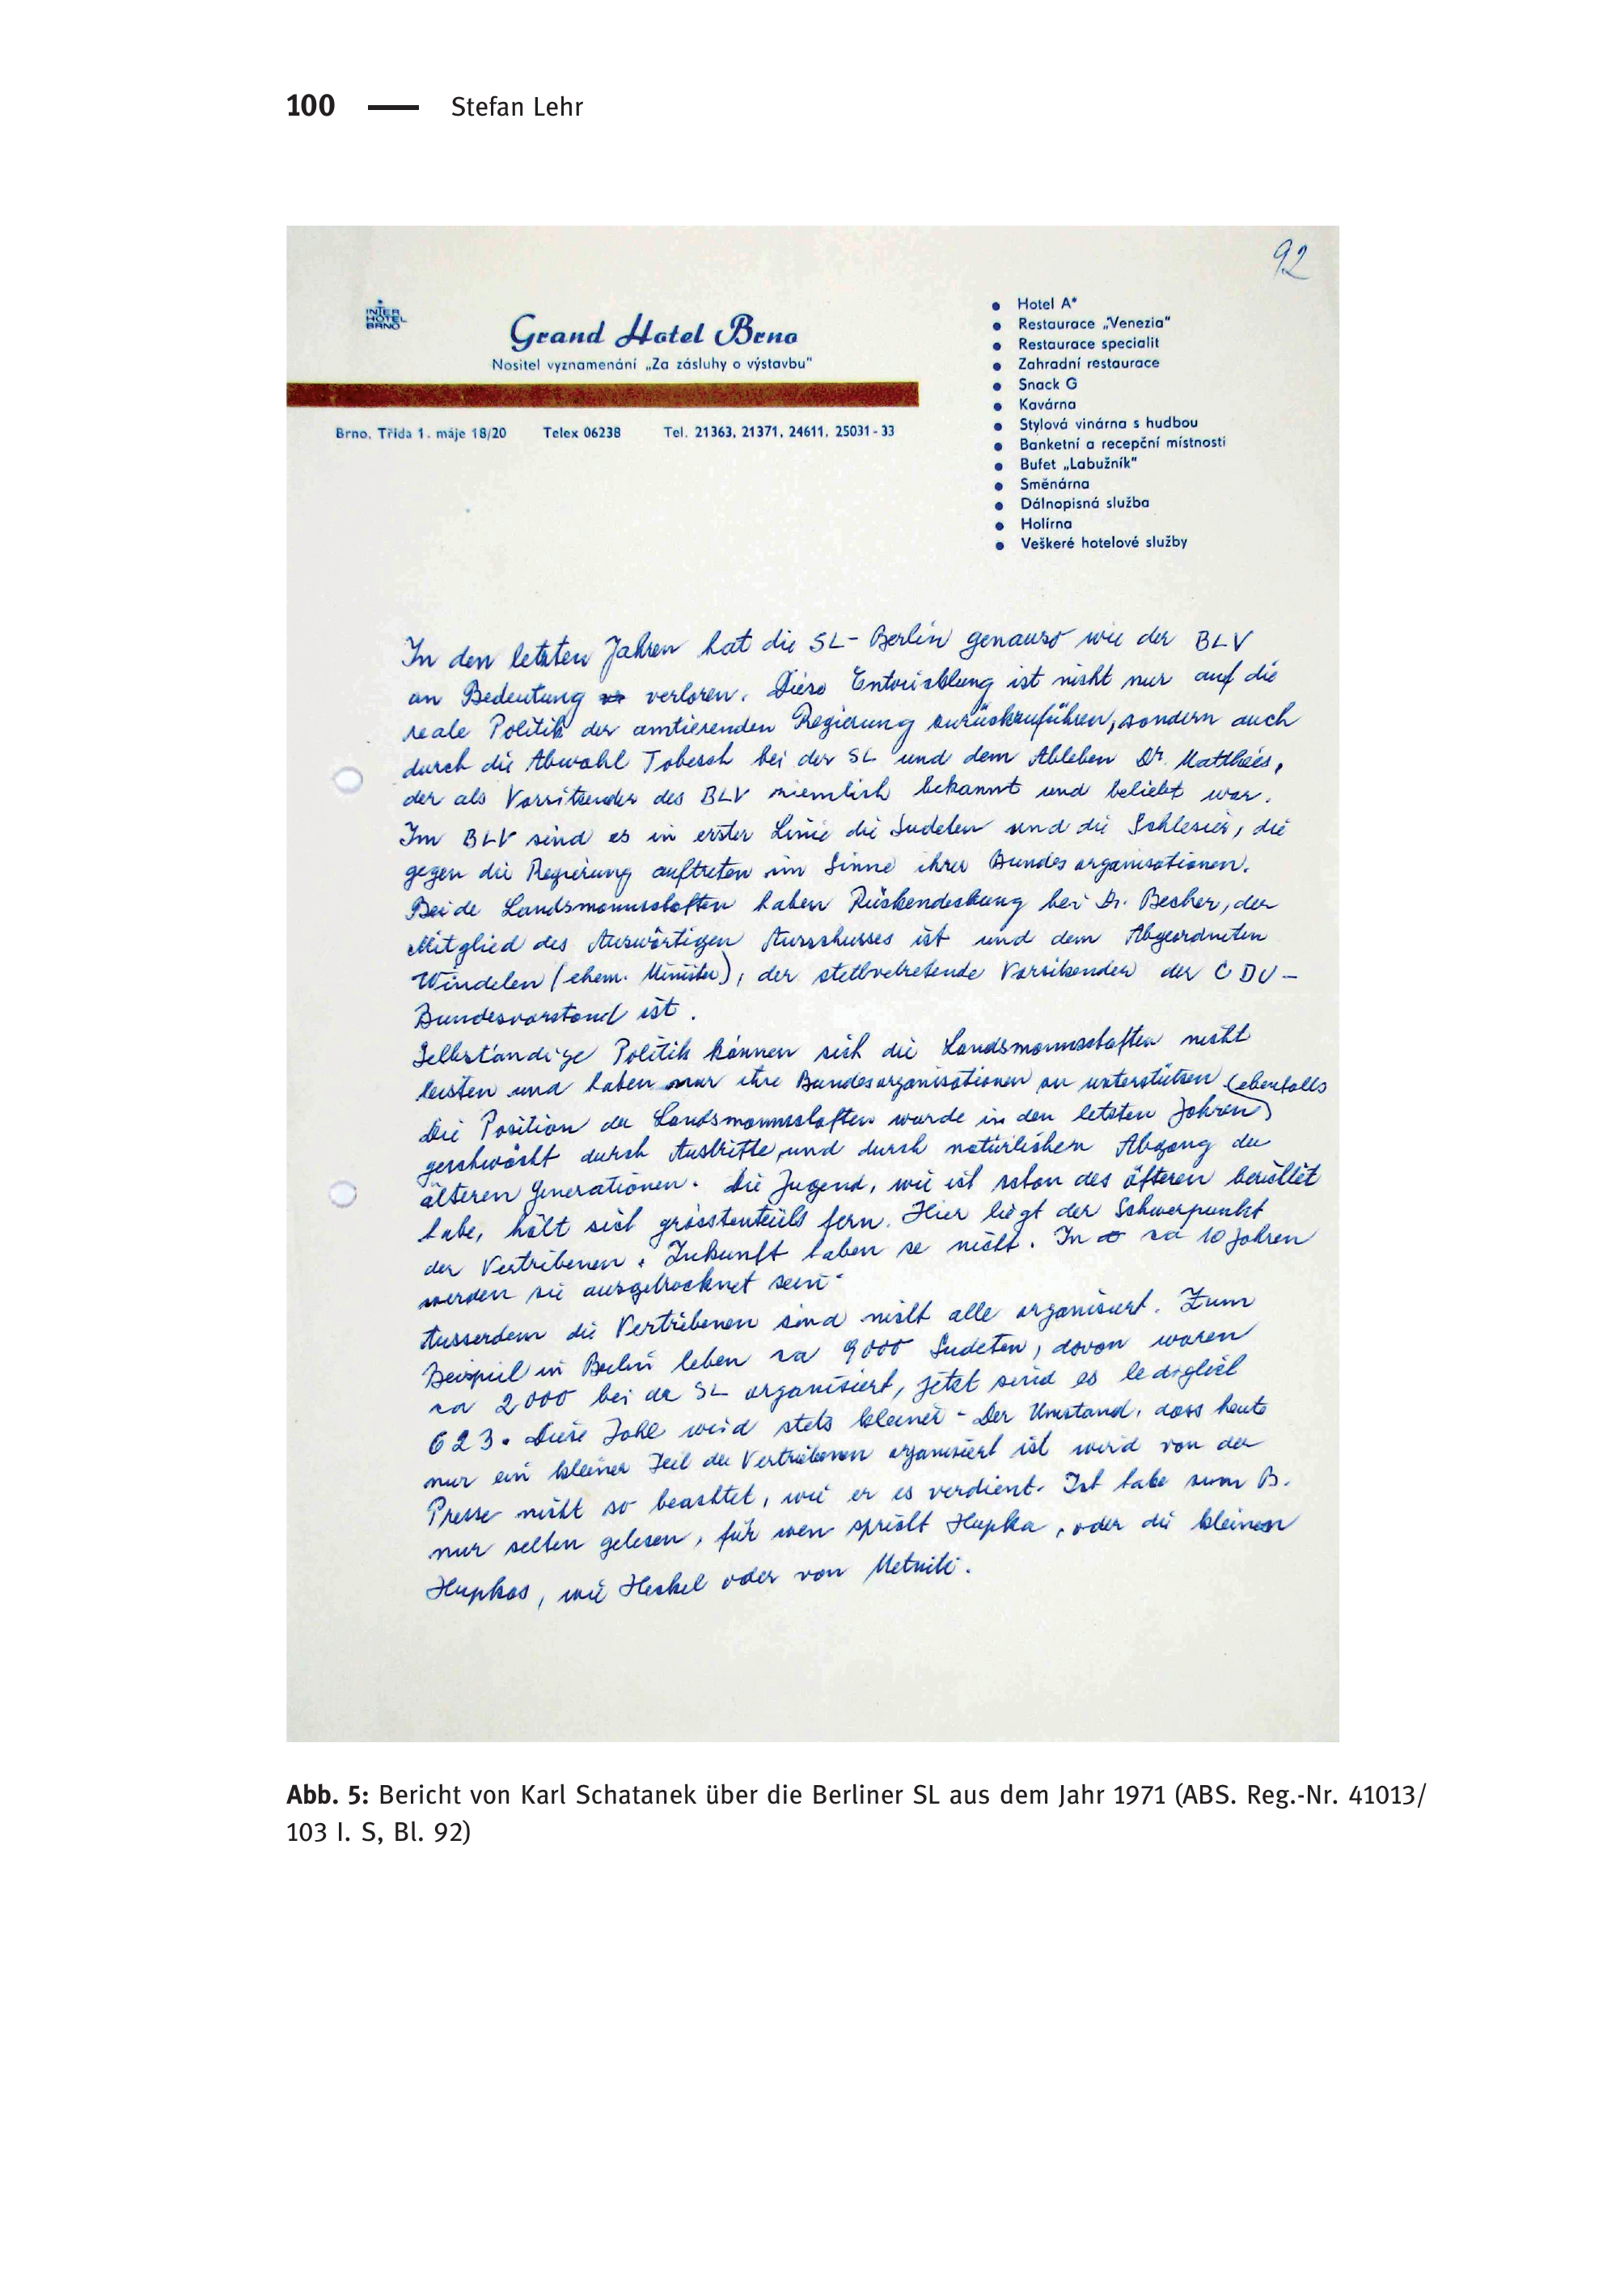 100 — Stefan Lehr
92
INTER
HOTEL
BRNO
Grand Hotel Brno
Nositel vyznamenání „Za zásluhy o výstavbu"
Brno, Třída 1. máje 18/20 Telex 06238 Tel. 21363, 21371, 24611, 25031-33
• Hotel A*
• Restaurace „Venezia"
• Restaurace specialit
• Zahradní restaurace
• Snack G
• Kavárna
• Stylová vinárna s hudbou
• Banketní a recepční místnosti
• Bufet „Labužník"
• Směnárna
• Dálnopisná služba
• Holírna
• Veškeré hotelové služby
In den letzten Jahren hat die SL-Berlin genauso wie der BLV
an Bedeutung verloren. Diese Entwicklung ist nicht nur auf die
reale Politik der amtierenden Regierung zurückzuführen, sondern auch
durch die Abwahl Tobesch bei der SL und dem Ableben Dr. Matthées,
der als Vorsitzender des BLV ziemlich bekannt und beliebt war.
Im BLV sind es in erster Linie die Sudeten und die Schlesier, die
gegen die Regierung auftreten im Sinne ihrer Bundesorganisationen.
Beide Landsmannschaften haben Rückendeckung bei Dr. Becher, der
Mitglied des Auswärtigen Ausschusses ist und dem Abgeordneten
Windelen (ehem. Minister), der stellvetretende Vorsitzender der CDU-
Bundesvorstand ist.
Selbständige Politik können sich die Landsmannschaften nicht
leisten und haben nur ihre Bundesorganisationen zu unterstützen (ebenfalls
Die Position der Landsmannschaften wurde in den letzten Jahren)
geschwächt durch Austritte und durch natürlichen Abgang der
älteren Generationen. Die Jugend, wie ich schon des öfteren berichtet
habe, hält sich grösstenteils fern. Hier liegt der Schwerpunkt
der Vertribenen. Zukunft haben se nicht. In ca 10 Jahren
werden sie ausgetrocknet sein.
Ausserdem die Vertribenen sind nicht alle organisiert. Zum
Beispiel in Berlin leben ca 9000 Sudeten, davon waren
ca 2000 bei der SL organisiert, jetzt sind es lediglich
623. Diese Zahl wird stets kleiner. Der Umstand, dass heute
nur ein kleiner Teil der Vertriebenen organisiert ist wird von der
Presse nicht so beachtet, wie er es verdient. Ich habe zum B.
nur selten gelesen, für wen spricht Hupka, oder die kleinen
Hupkas, wie Heckel oder von
Abb. 5: Bericht von Karl Schatanek über die Berliner SL aus dem Jahr 1971 (ABS. Reg.-Nr. 41013/
103 I. S, Bl. 92)